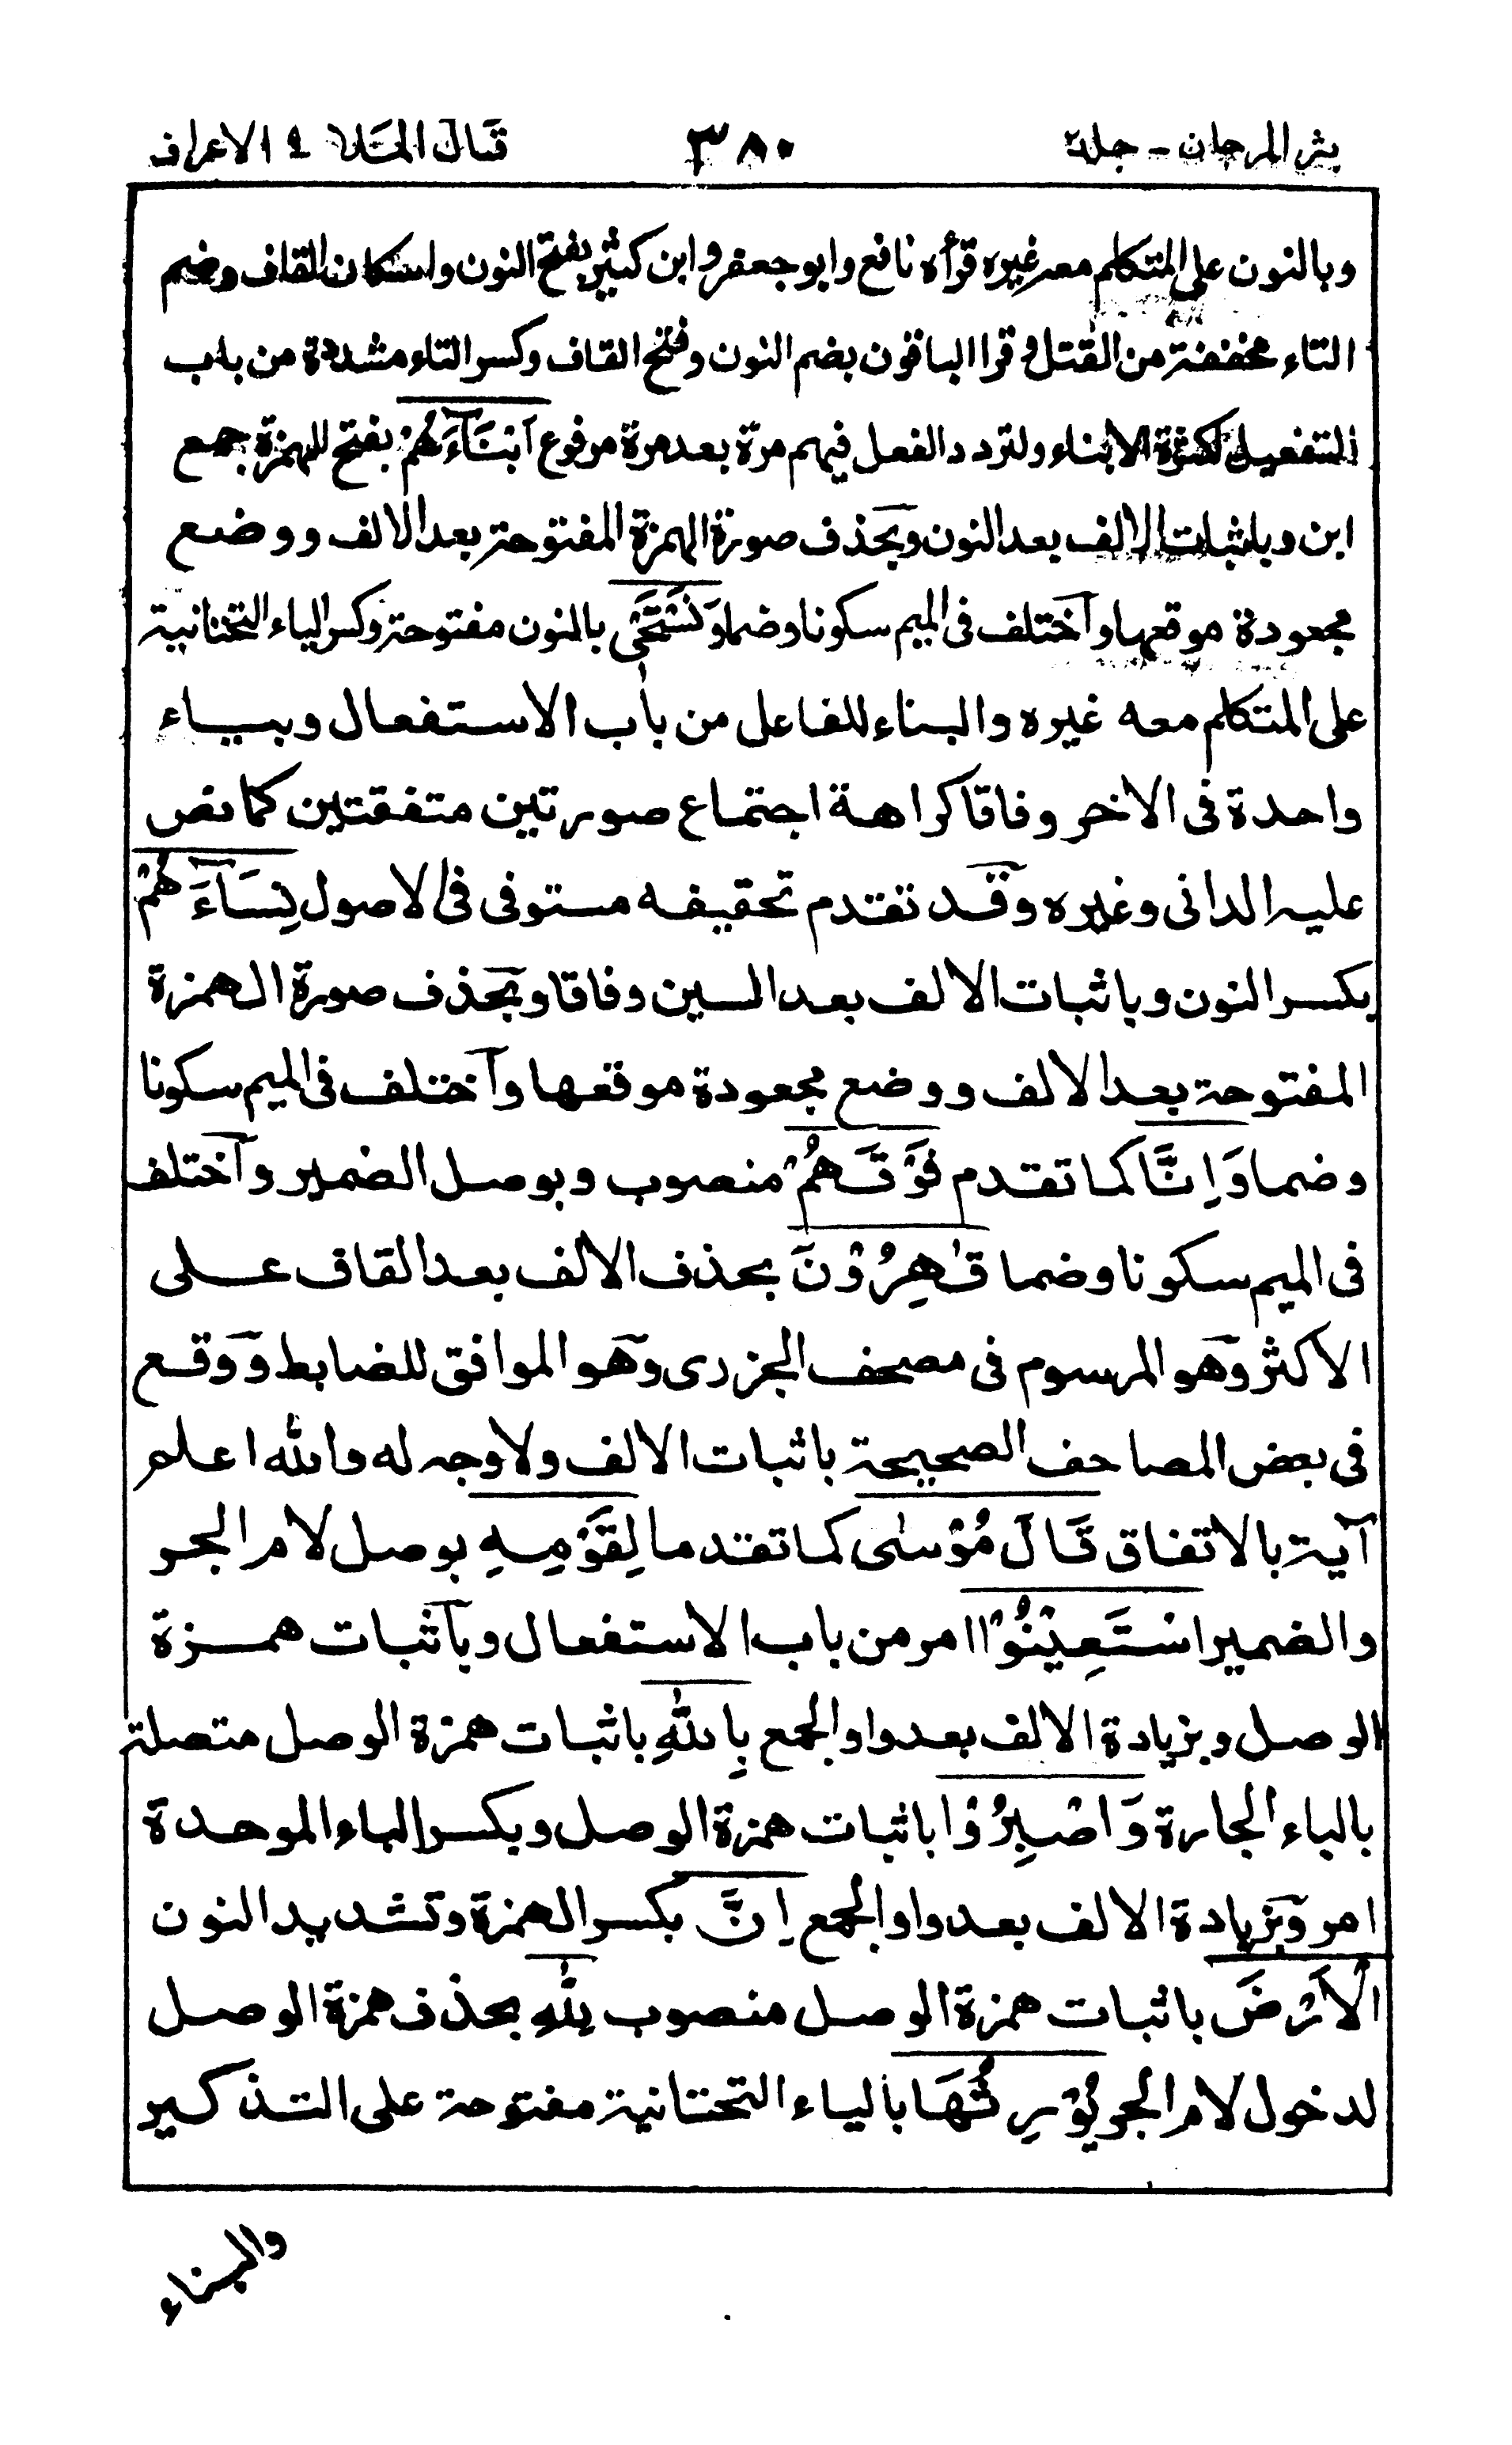 نثر المرجان - جلد ٢ ٣٨٠ قال الملا ٩ الاعراف
وبالنون على المتكلم معه غيره قرأه نافع وابو جعفر وابن كثير بفتح النون واسكان القاف وضم
التاء مخففة من القتل وقرا الباقون بضم النون وفتح القاف وكسر التاء مشددة من باب
التفعيل لكثرة الابناء ولتردد الفعل فيهم مرة بعد مرة مرفوع اَبْنَآءَهُمْ بفتح الهمزة جمع
ابن وباثبات الالف بعد النون وبحذف صورة الهمزة المفتوحة بعد الالف ووضع
مجعودة موقعها واختلف فى الميم سكونا وضما وَنَسْتَحْىٖ بالنون مفتوحة وكسر الياء التحتانية
على المتكلم معه غيره والبناء للفاعل من باب الاستفعال وبياء
واحدة فى الاخر وفاقا كراهة اجتماع صورتين متفقتين كما نص
عليه الدانى وغيره وقد تقدم تحقيقه مستوفى فى الاصول نِسَآءَهُمْ
بكسر النون وباثبات الالف بعد السين وفاقا وبحذف صورة الهمزة
المفتوحة بعد الالف ووضع مجعودة موقعها واختلف فى الميم سكونا
وضما وَاِنَّا كما تقدم فَوْقَهُمْ منصوب وبوصل الضمير واختلف
فى الميم سكونا وضما قٰهِرُوْنَ بحذف الالف بعد القاف على
الاكثر وهو المرسوم فى مصحف الجزرى وهو الموافق للضابط ووقع
فى بعض المصاحف الصحيحة باثبات الالف ولا وجه له والله اعلم
آية بالاتفاق قَالَ مُوْسٰى كما تقدما لِقَوْمِهِ بوصل لام الجر
والضمير اسْتَعِيْنُوْا امر من باب الاستفعال وباثبات همزة
الوصل وبزيادة الالف بعد واو الجمع بِاللّٰهِ باثبات همزة الوصل متصلة
بالباء الجارة وَاصْبِرُوْا باثبات همزة الوصل وبكسر الباء الموحدة
امر وبزيادة الالف بعد واو الجمع اِنَّ بكسر الهمزة وتشديد النون
الْاَرْضَ باثبات همزة الوصل منصوب لِلّٰهِ بحذف همزة الوصل
لدخول لام الجر يُوْرِثُهَا بالياء التحتانية مفتوحة على التذكير
والبناء